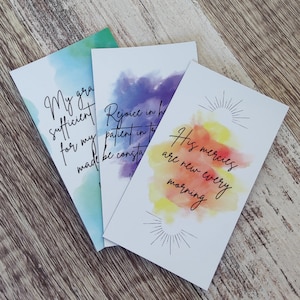 My gra
sufficient
for my
made
Rejoice in h
patient in t
be consta
His mercies
are new every
morning